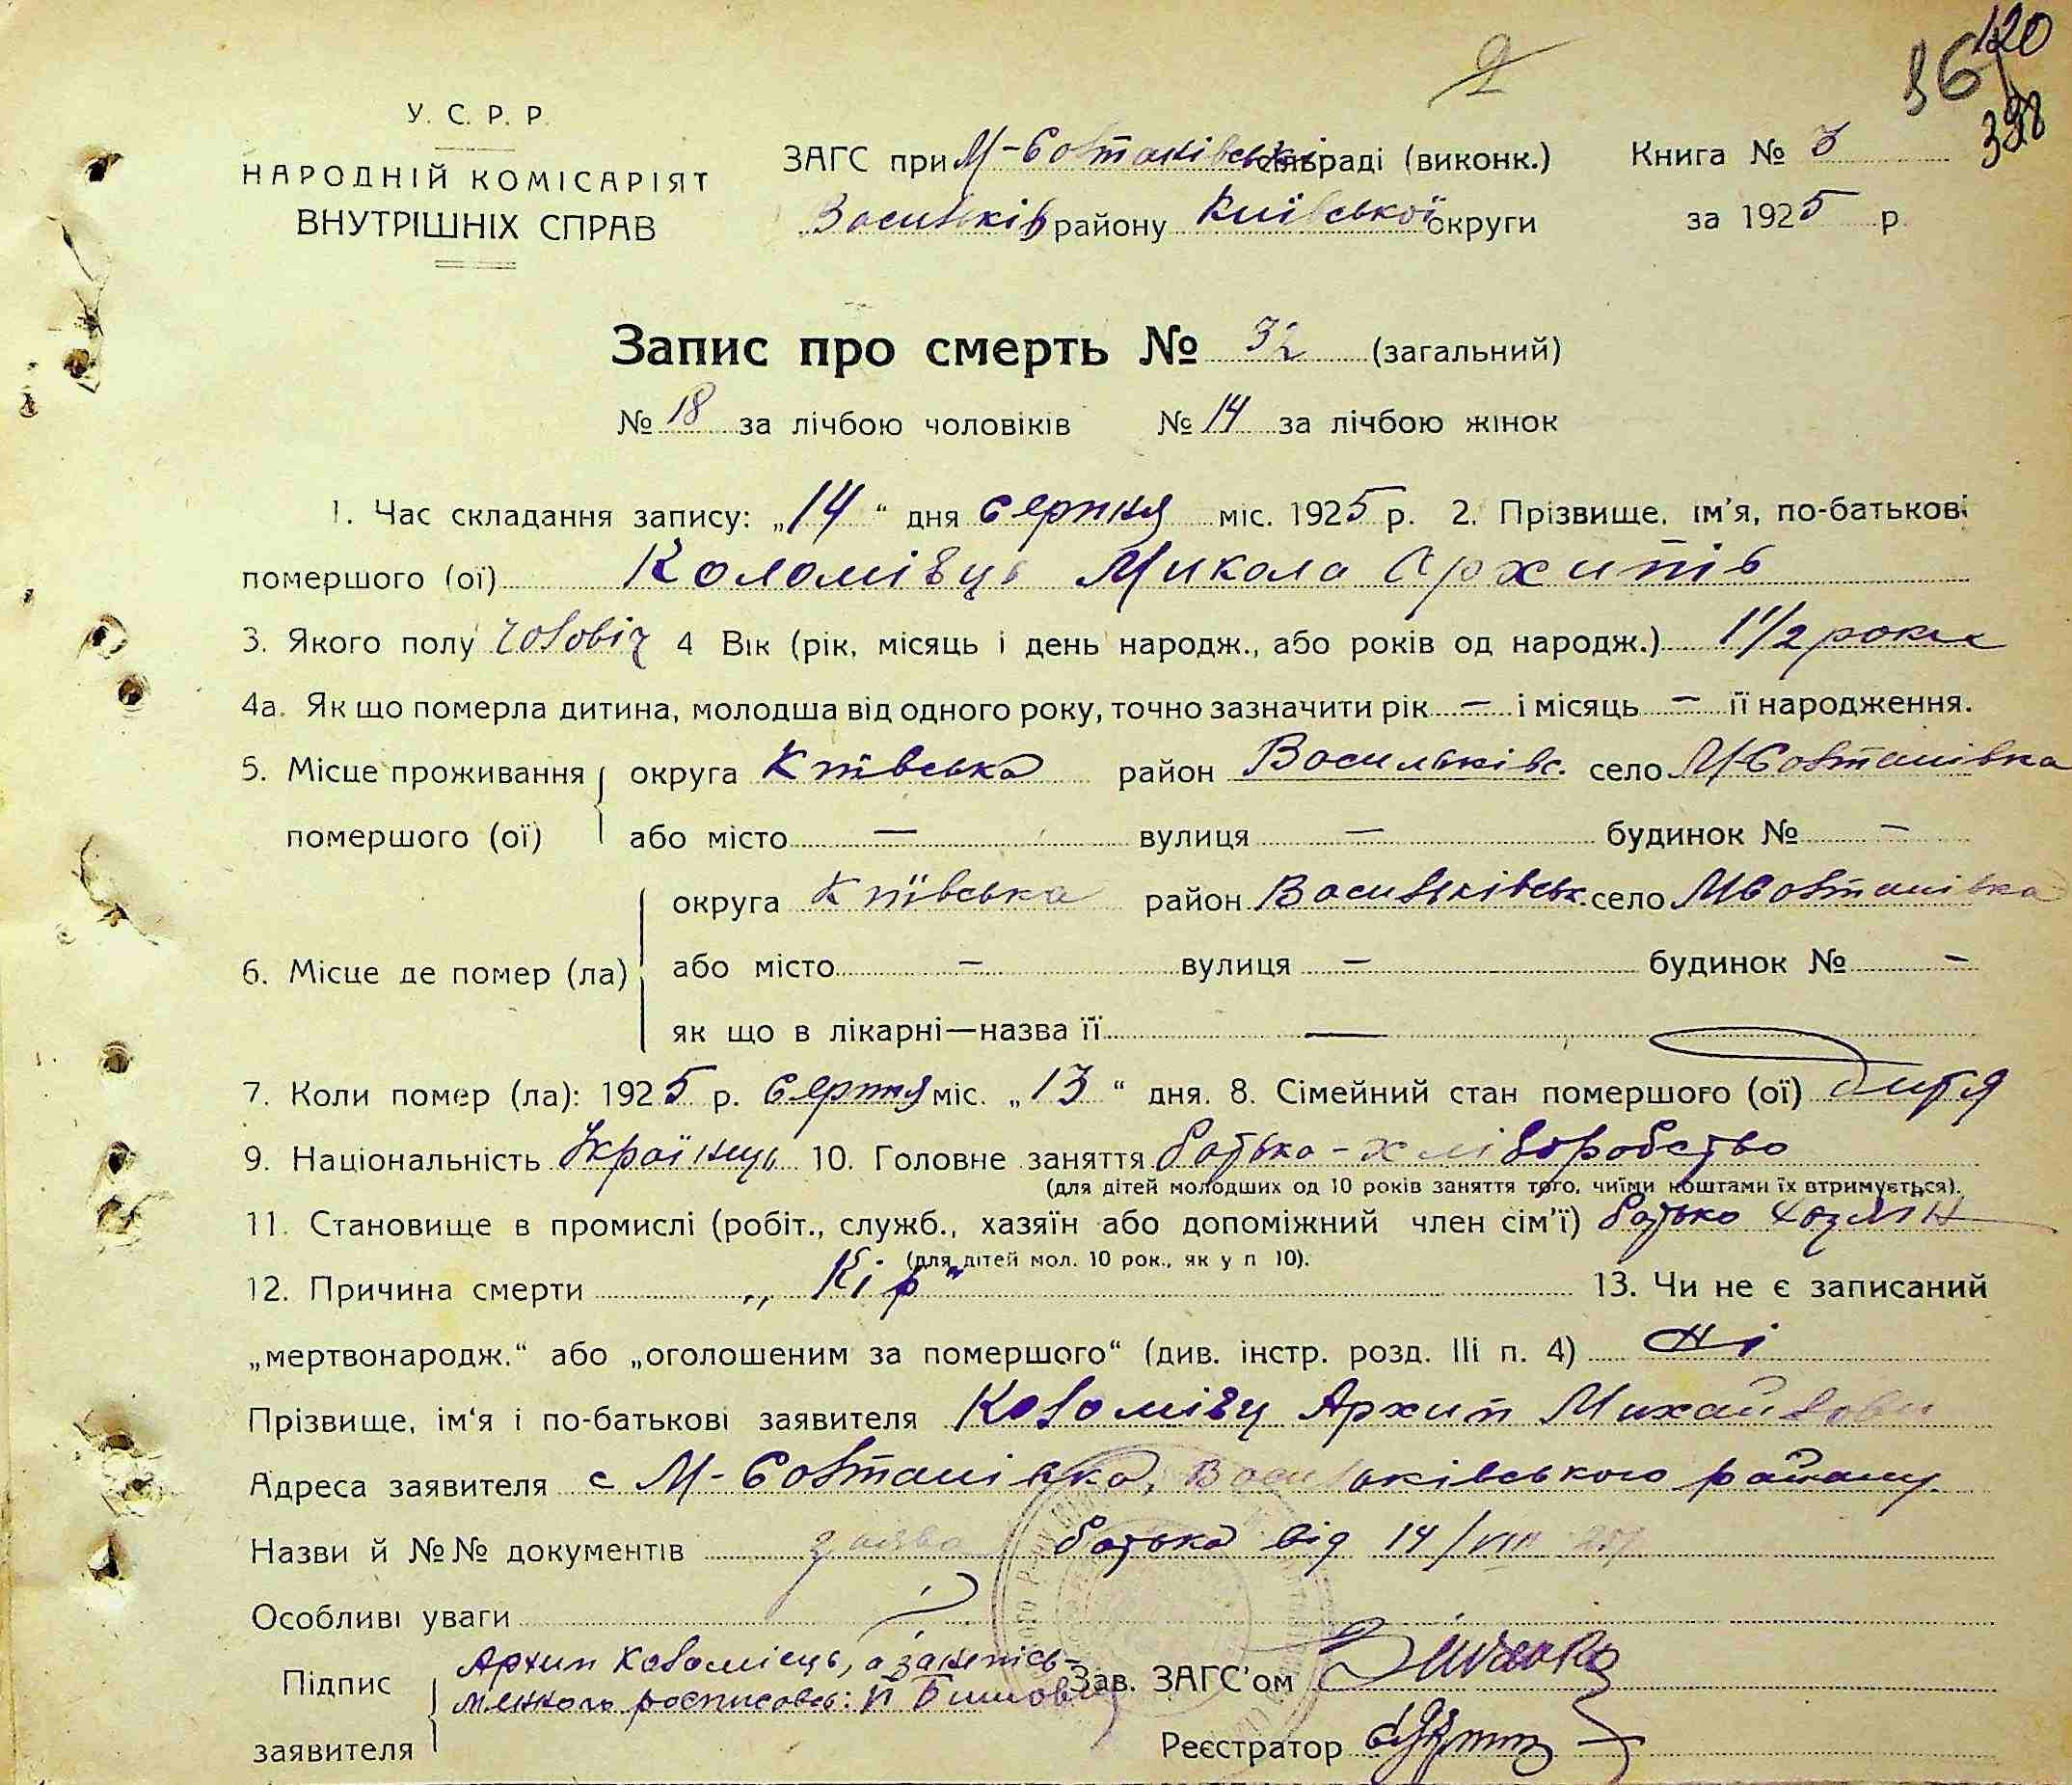 120
36
398
2
У. С. Р. Р.
НАРОДНІЙ КОМІСАРІЯТ
ВНУТРІШНІХ СПРАВ
ЗАГС при М-Совтанівські сільраді (виконк.)
Васильків району Київської округи
Книга № 3
за 1925 р.
Запис про смерть № 32 (загальний)
№ 18 за лічбою чоловіків № 14 за лічбою жінок
1. Час складання запису: „14“ дня серпня міс. 1925 р. 2. Прізвище, ім'я, по-батькові
помершого (ої) Коломієць Микола Архипів
3. Якого полу чоловіч 4 Вік (рік, місяць і день народж., або років од народж.) 1 1/2 роки
4а. Як що померла дитина, молодша від одного року, точно зазначити рік — і місяць — її народження.
5. Місце проживання округа Київська район Васильківс. село М-Совтанівка
помершого (ої) або місто — вулиця — будинок № —
округа Київська район Васильківськ. село М Совтанівка
6. Місце де помер (ла) або місто — вулиця — будинок № —
як що в лікарні—назва її —
7. Коли помер (ла): 1925 р. Серпня міс. „13“ дня. 8. Сімейний стан помершого (ої) дитя
9. Національність Українць 10. Головне заняття батька - хліборобство
(для дітей молодших од 10 років заняття того, чиїми коштами їх втримується).
11. Становище в промислі (робіт., служб., хазяїн або допоміжний член сім'ї) батько хозяїн
(для дітей мол. 10 рок., як у п 10).
12. Причина смерти „Кір“ 13. Чи не є записаний
„мертвонародж.“ або „оголошеним за помершого“ (див. інстр. розд. III п. 4) Ні
Прізвище, ім'я і по-батькові заявителя Коломієц Архип Михайлови
Адреса заявителя с М-Совтанівка, Васильківського району
Назви й №№ документів заява батька від 14/VIII 25р
Особливі уваги
Підпис заявителя Архип Коломієць, а за непись-
менного росписовсь:
Зав. ЗАГС'ом
Реєстратор